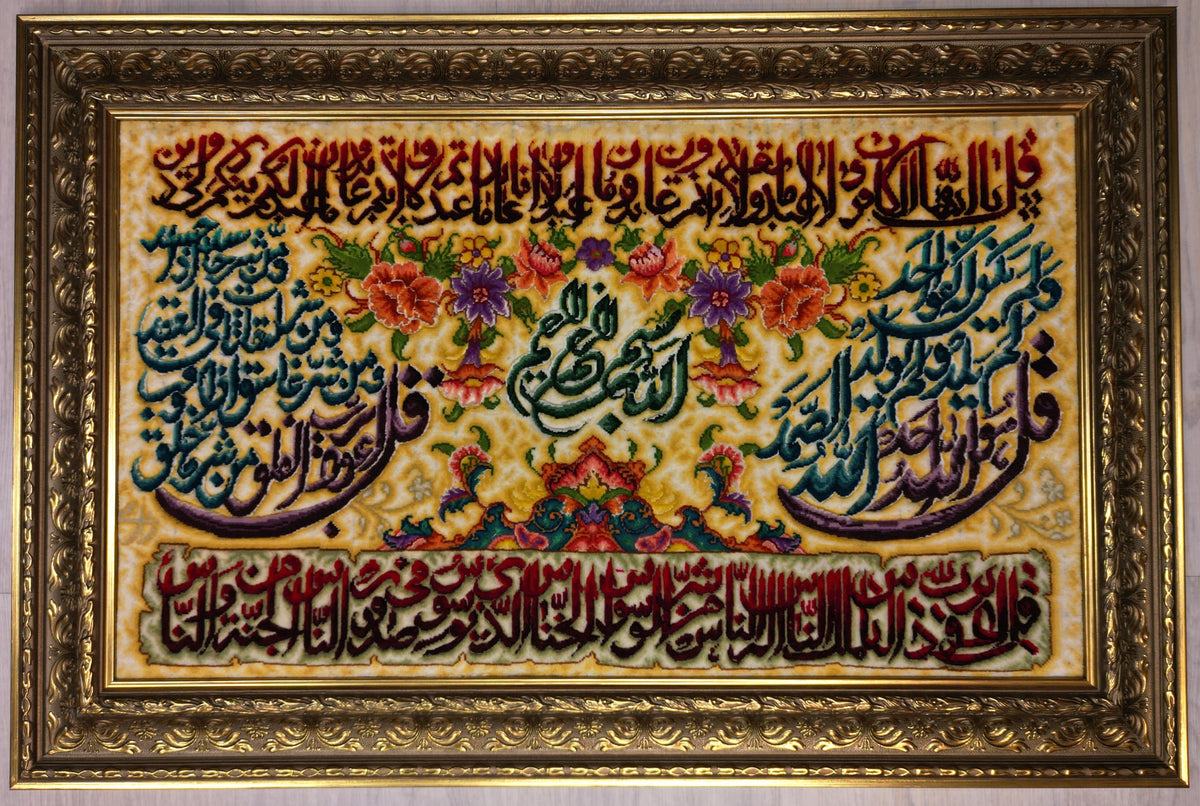 قل يا أيها الكافرون لا أعبد ما تعبدون ولا أنتم عابدون ما أعبد ولا أنا عابد ما عبدتم ولا أنتم عابدون ما أعبد لكم دينكم ولي دين
بسم الله الرحمن الرحيم
قل هو الله أحد
الله الصمد
لم يلد ولم يولد
ولم يكن له كفوا أحد
قل أعوذ برب الفلق
من شر ما خلق
ومن شر غاسق إذا وقب
ومن شر النفاثات في العقد
ومن شر حاسد إذا حسد
قل أعوذ برب الناس ملك الناس إله الناس من شر الوسواس الخناس الذي يوسوس في صدور الناس من الجنة والناس